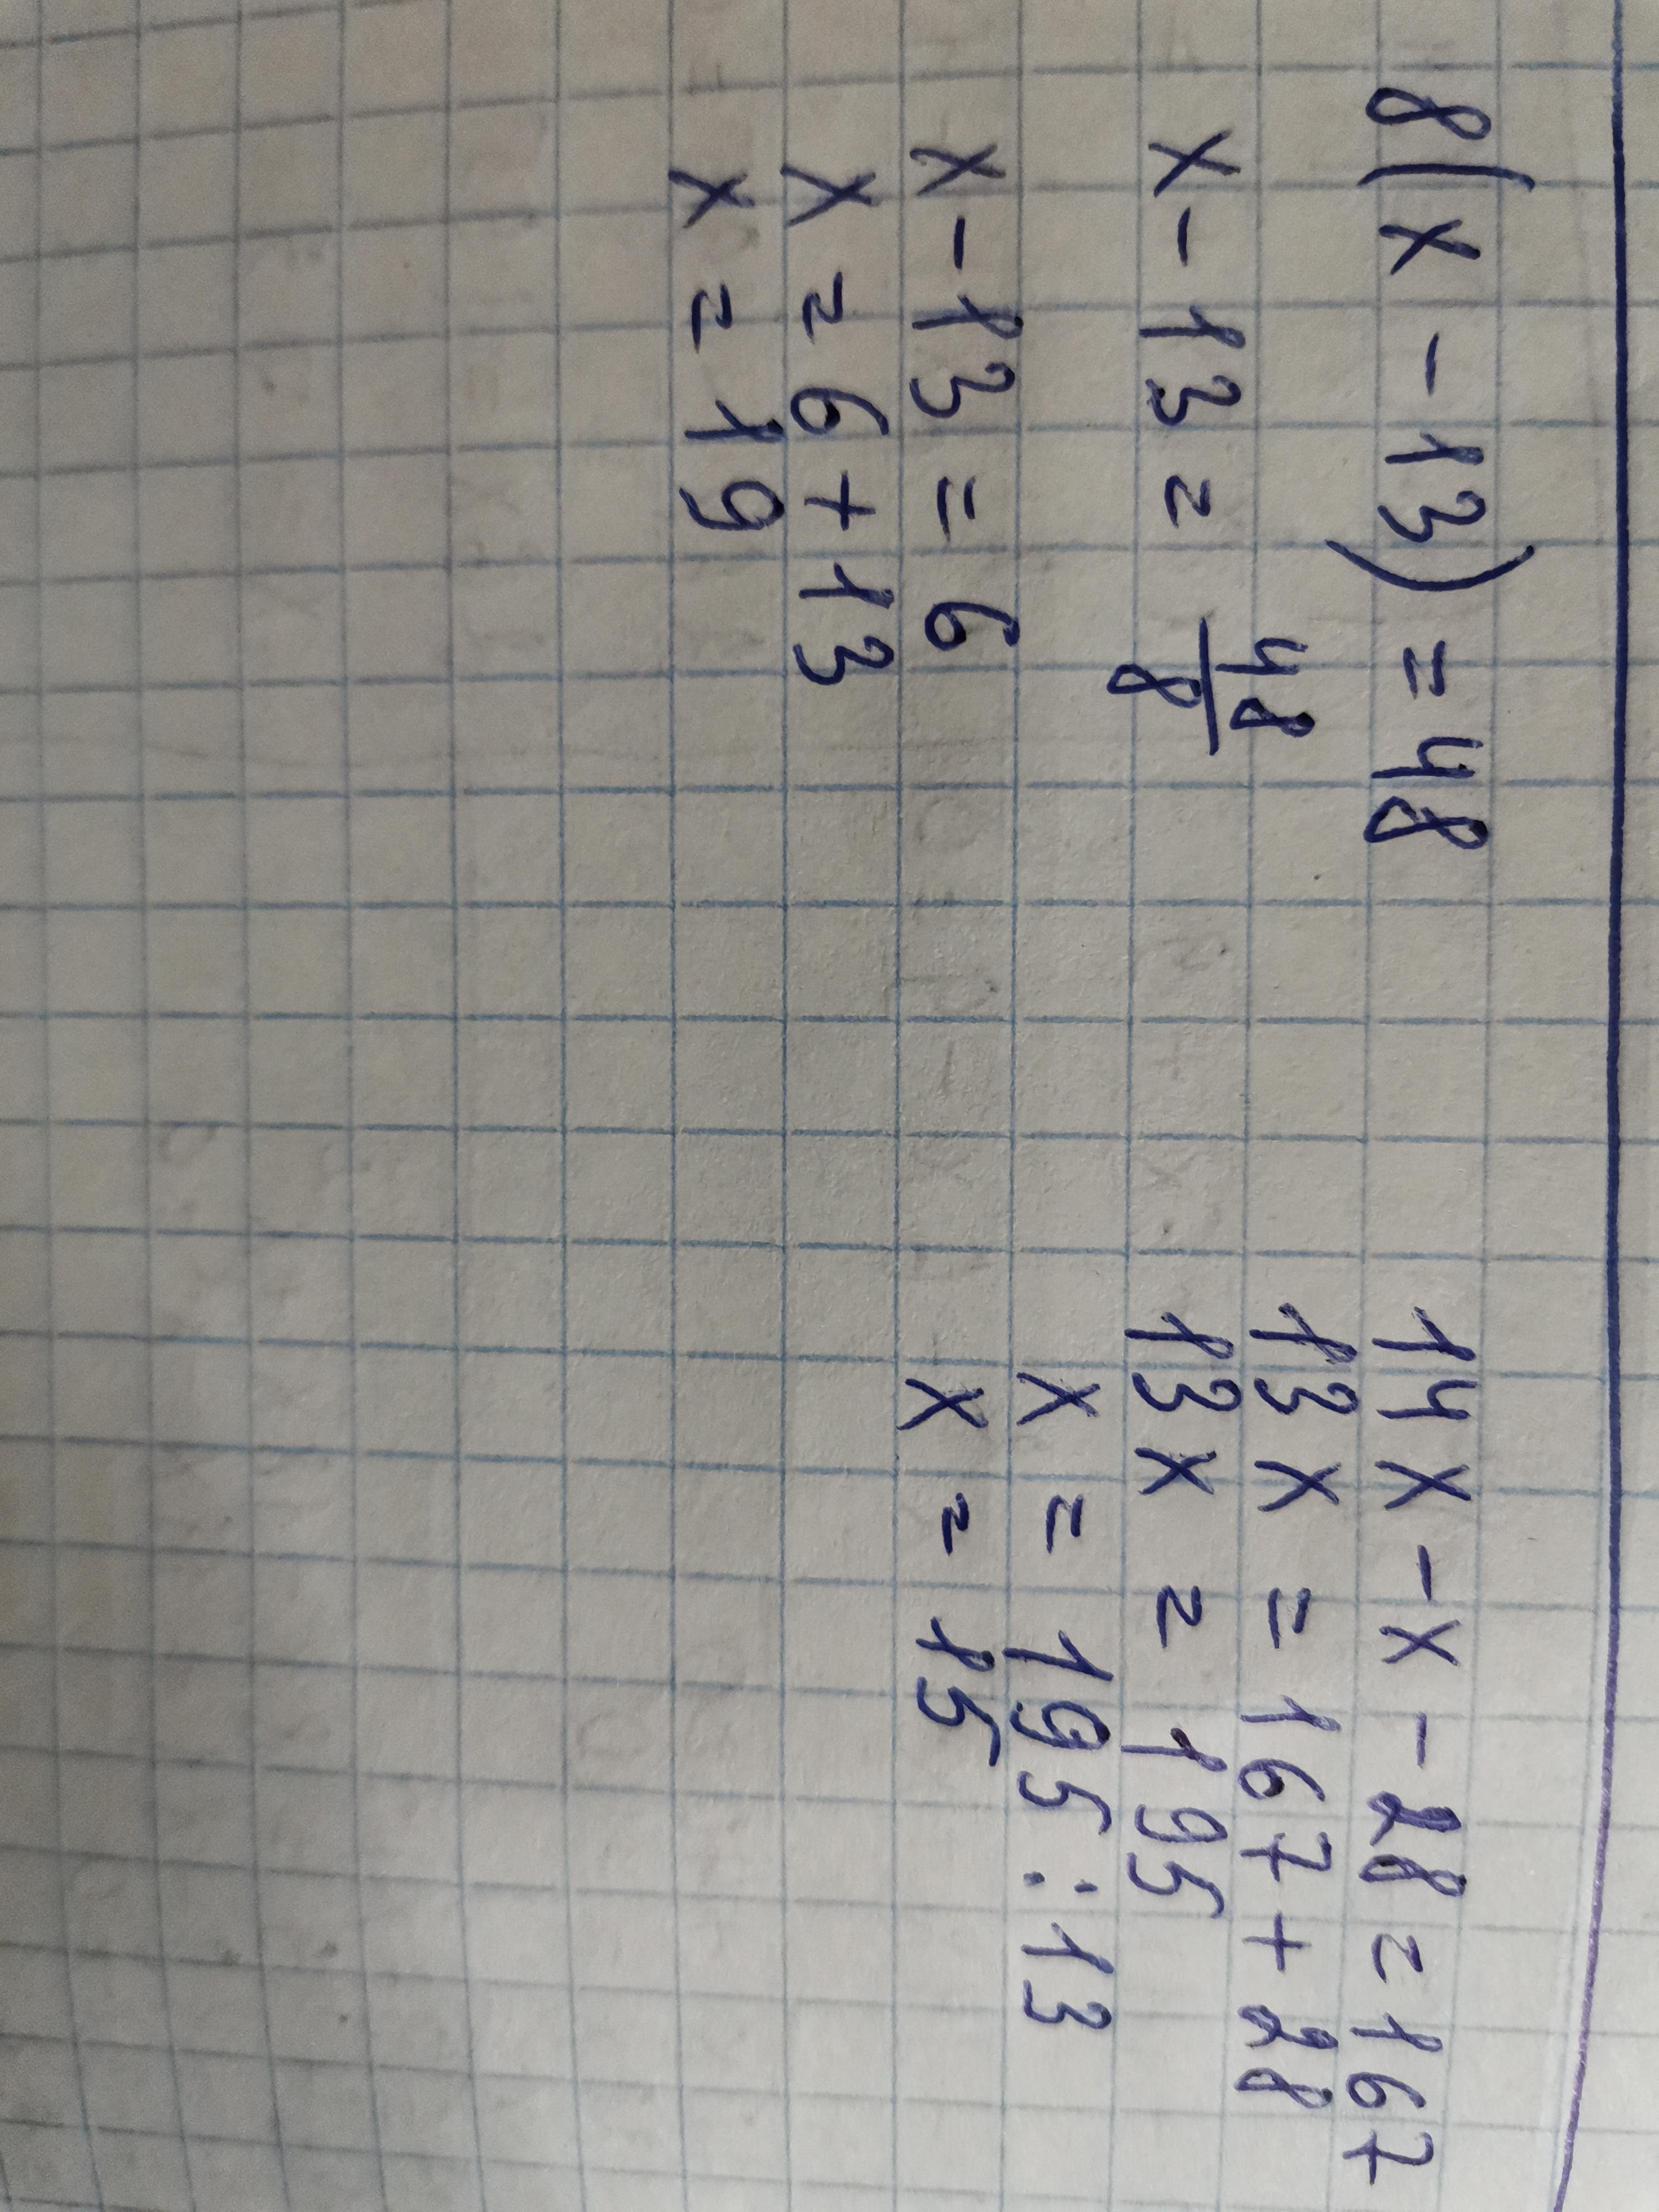 8(x-13)=48
x-13=48/8
x-13=6
x=6+13
x=19
14x-x-28=167
13x=167+28
13x=195
x=195:13
x=15